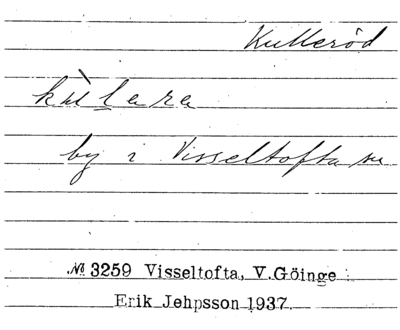 Kulleröd
kùlara
by i Visseltofta sn
№ 3259 Visseltofta, V.Göinge
Erik Jehpsson 1937.